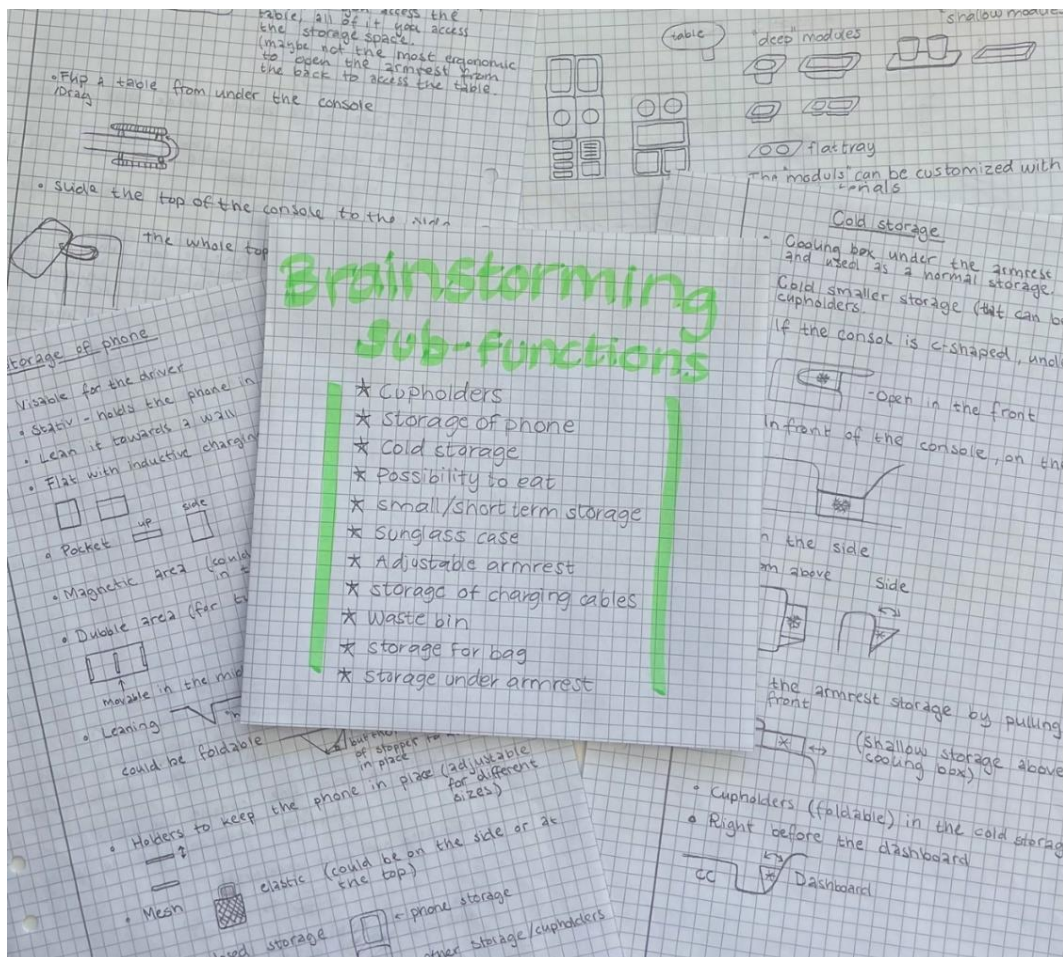 access the
table, all of it you access
the storage space.
(maybe not the most ergonomic
to open the armrest from
the back to access the table.
• Flip a table from under the console
/Drag
• Slide the top of the console to the
the whole top
table
"deep" modules
"shallow
flat tray
can be customized with
Cold storage
- Cooling box under the armrest
and used as a normal storage.
Cold smaller storage (that can be
cupholders.
If the consol is c-shaped,
- Open in the front
In front of the console, on the
the side
above
Side
the armrest storage by pulling
front
(shallow storage above
cooling box)
• Cupholders (foldable) in the cold
• Right before the dashboard
CC
Dashboard
Brainstorming
Sub-functions
* Cupholders
* Storage of phone
* Cold storage
* Possibility to eat
* Small/short term storage
* Sunglass case
* Adjustable armrest
* Storage of charging cables
* Waste bin
* Storage for bag
* Storage under armrest
of phone
Visable for the driver
• Stativ - holds the phone in
• Lean it towards a wall
• Flat with inductive charging
• Pocket
up
side
• Magnetic area (could
• Dubble area (for
movable in the
• Leaning
could be foldable
of stopper
in place
• Holders to keep the phone in place (adjustable
for different
sizes)
• Mesh
elastic (could be on the side or at
the top)
storage
← phone storage
storage/cupholders